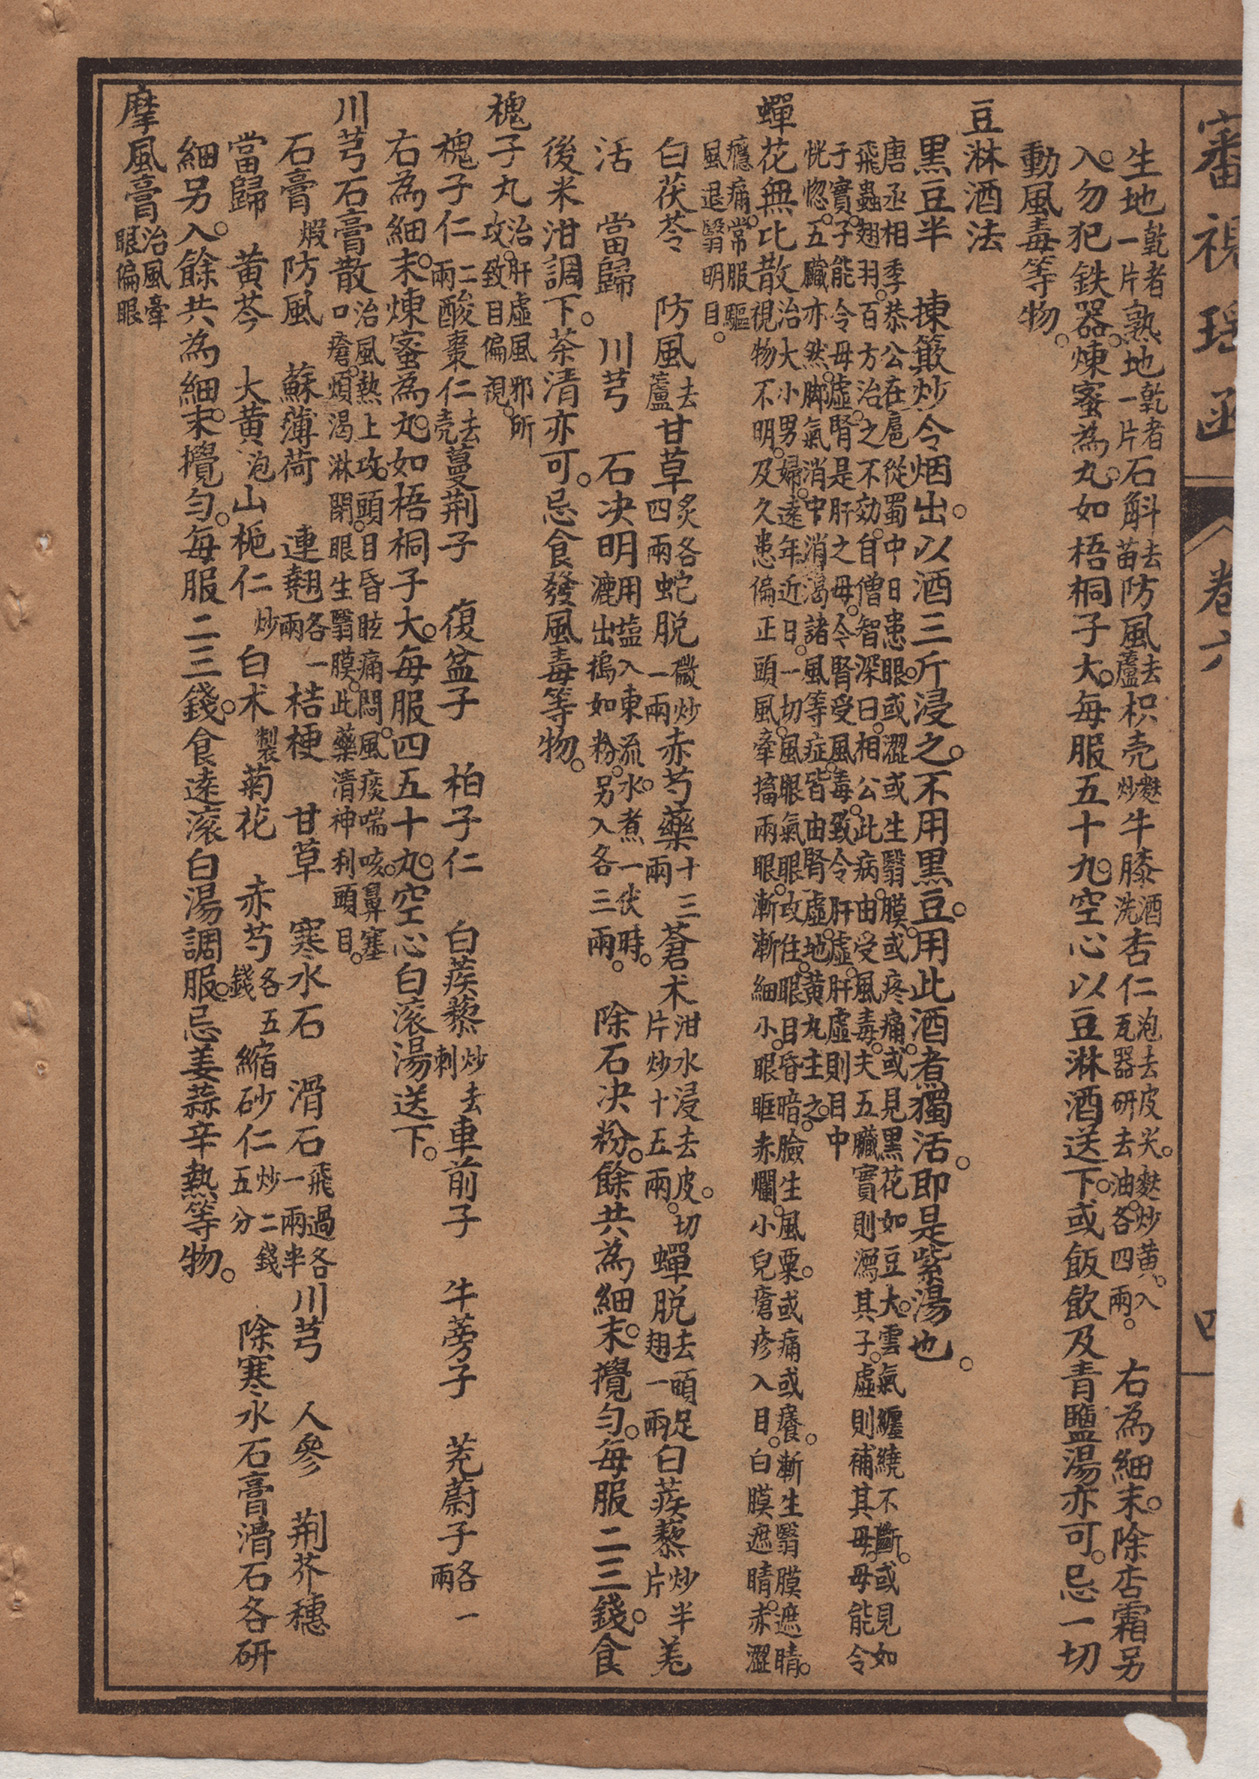 審視瑤函
卷六
四
生地乾者一片熟地乾者一片石斛去苗防風去蘆枳壳麩炒牛膝酒洗杏仁泡去皮尖。麩炒黃。入瓦器研去油。各四兩。 右為細末。除杏霜另
入。勿犯鉄器。煉蜜為丸。如梧桐子大。每服五十丸。空心以豆淋酒送下。或飯飲及青鹽湯亦可。忌一切
動風毒等物。
豆淋酒法
黑豆半 揀簸炒令烟出。以酒三斤浸之。不用黑豆。用此酒煮獨活。即是紫湯也。
唐丞相李恭公在扈從蜀中日患眼。或澀或生翳膜。或疼痛。或見黑花如豆大。雲氣纏繞不斷。或見如
飛蟲翅羽。百方治之不効。自僧智深曰。相公此病由受風毒。夫五臟實則瀉其子。虛則補其母。母能令
子實。子能令母虛。腎是肝之母。今腎受風毒。致令肝虛。肝虛則目中
恍惚。五臟亦然。脚氣消中消渴諸風等症。皆由腎虛。地黃丸主之。
蟬花無比散治大小男婦。遠年近日。一切風眼氣眼攻住。眼目昏暗。臉生風粟。或痛或癢。漸生翳膜遮睛。
視物不明。及久患偏正頭風牽搐兩眼。漸漸細小。眼眶赤爛。小兒瘡疹入目。白膜遮睛。赤澀
癮痛。常服驅
風退翳明目。
白茯苓 防風去蘆甘草炙各四兩蛇脫微炒一兩赤芍藥十三兩蒼朮泔水浸去皮。切片炒十五兩。蟬脫去頭足翅一兩白蒺藜炒半片羌
活 當歸 川芎 石決明用塩入東流水。煮一伏時。漉出搗如粉。另入各三兩。 除石決粉。餘共為細末。攪勻。每服二三錢。食
後米泔調下。茶清亦可。忌食發風毒等物。
槐子丸治肝虛風邪所攻。致目偏視。
槐子仁二兩酸棗仁去壳蔓荆子 復盆子 柏子仁 白蒺藜炒去刺車前子 牛蒡子 茺蔚子各一兩
右為細末。煉蜜為丸。如梧桐子大。每服四五十丸。空心白滚湯送下。
川芎石膏散治風熱上攻。頭目昏眩痛悶。風痰喘咳。鼻塞
口瘡。煩渴淋閉。眼生翳膜。此藥清神利頭目。
石膏煅防風 蘇薄荷 連翹各一兩桔梗 甘草 寒水石 滑石飛過各一兩半川芎 人參 荆芥穗
當歸 黄芩 大黄泡山梔仁炒白朮製菊花 赤芍各五錢縮砂仁炒二錢五分 除寒水石膏滑石各研
細另入。餘共為細末。攪勻。每服二三錢。食遠滚白湯調服。忌姜蒜辛熱等物。
摩風膏治風牽眼偏眼